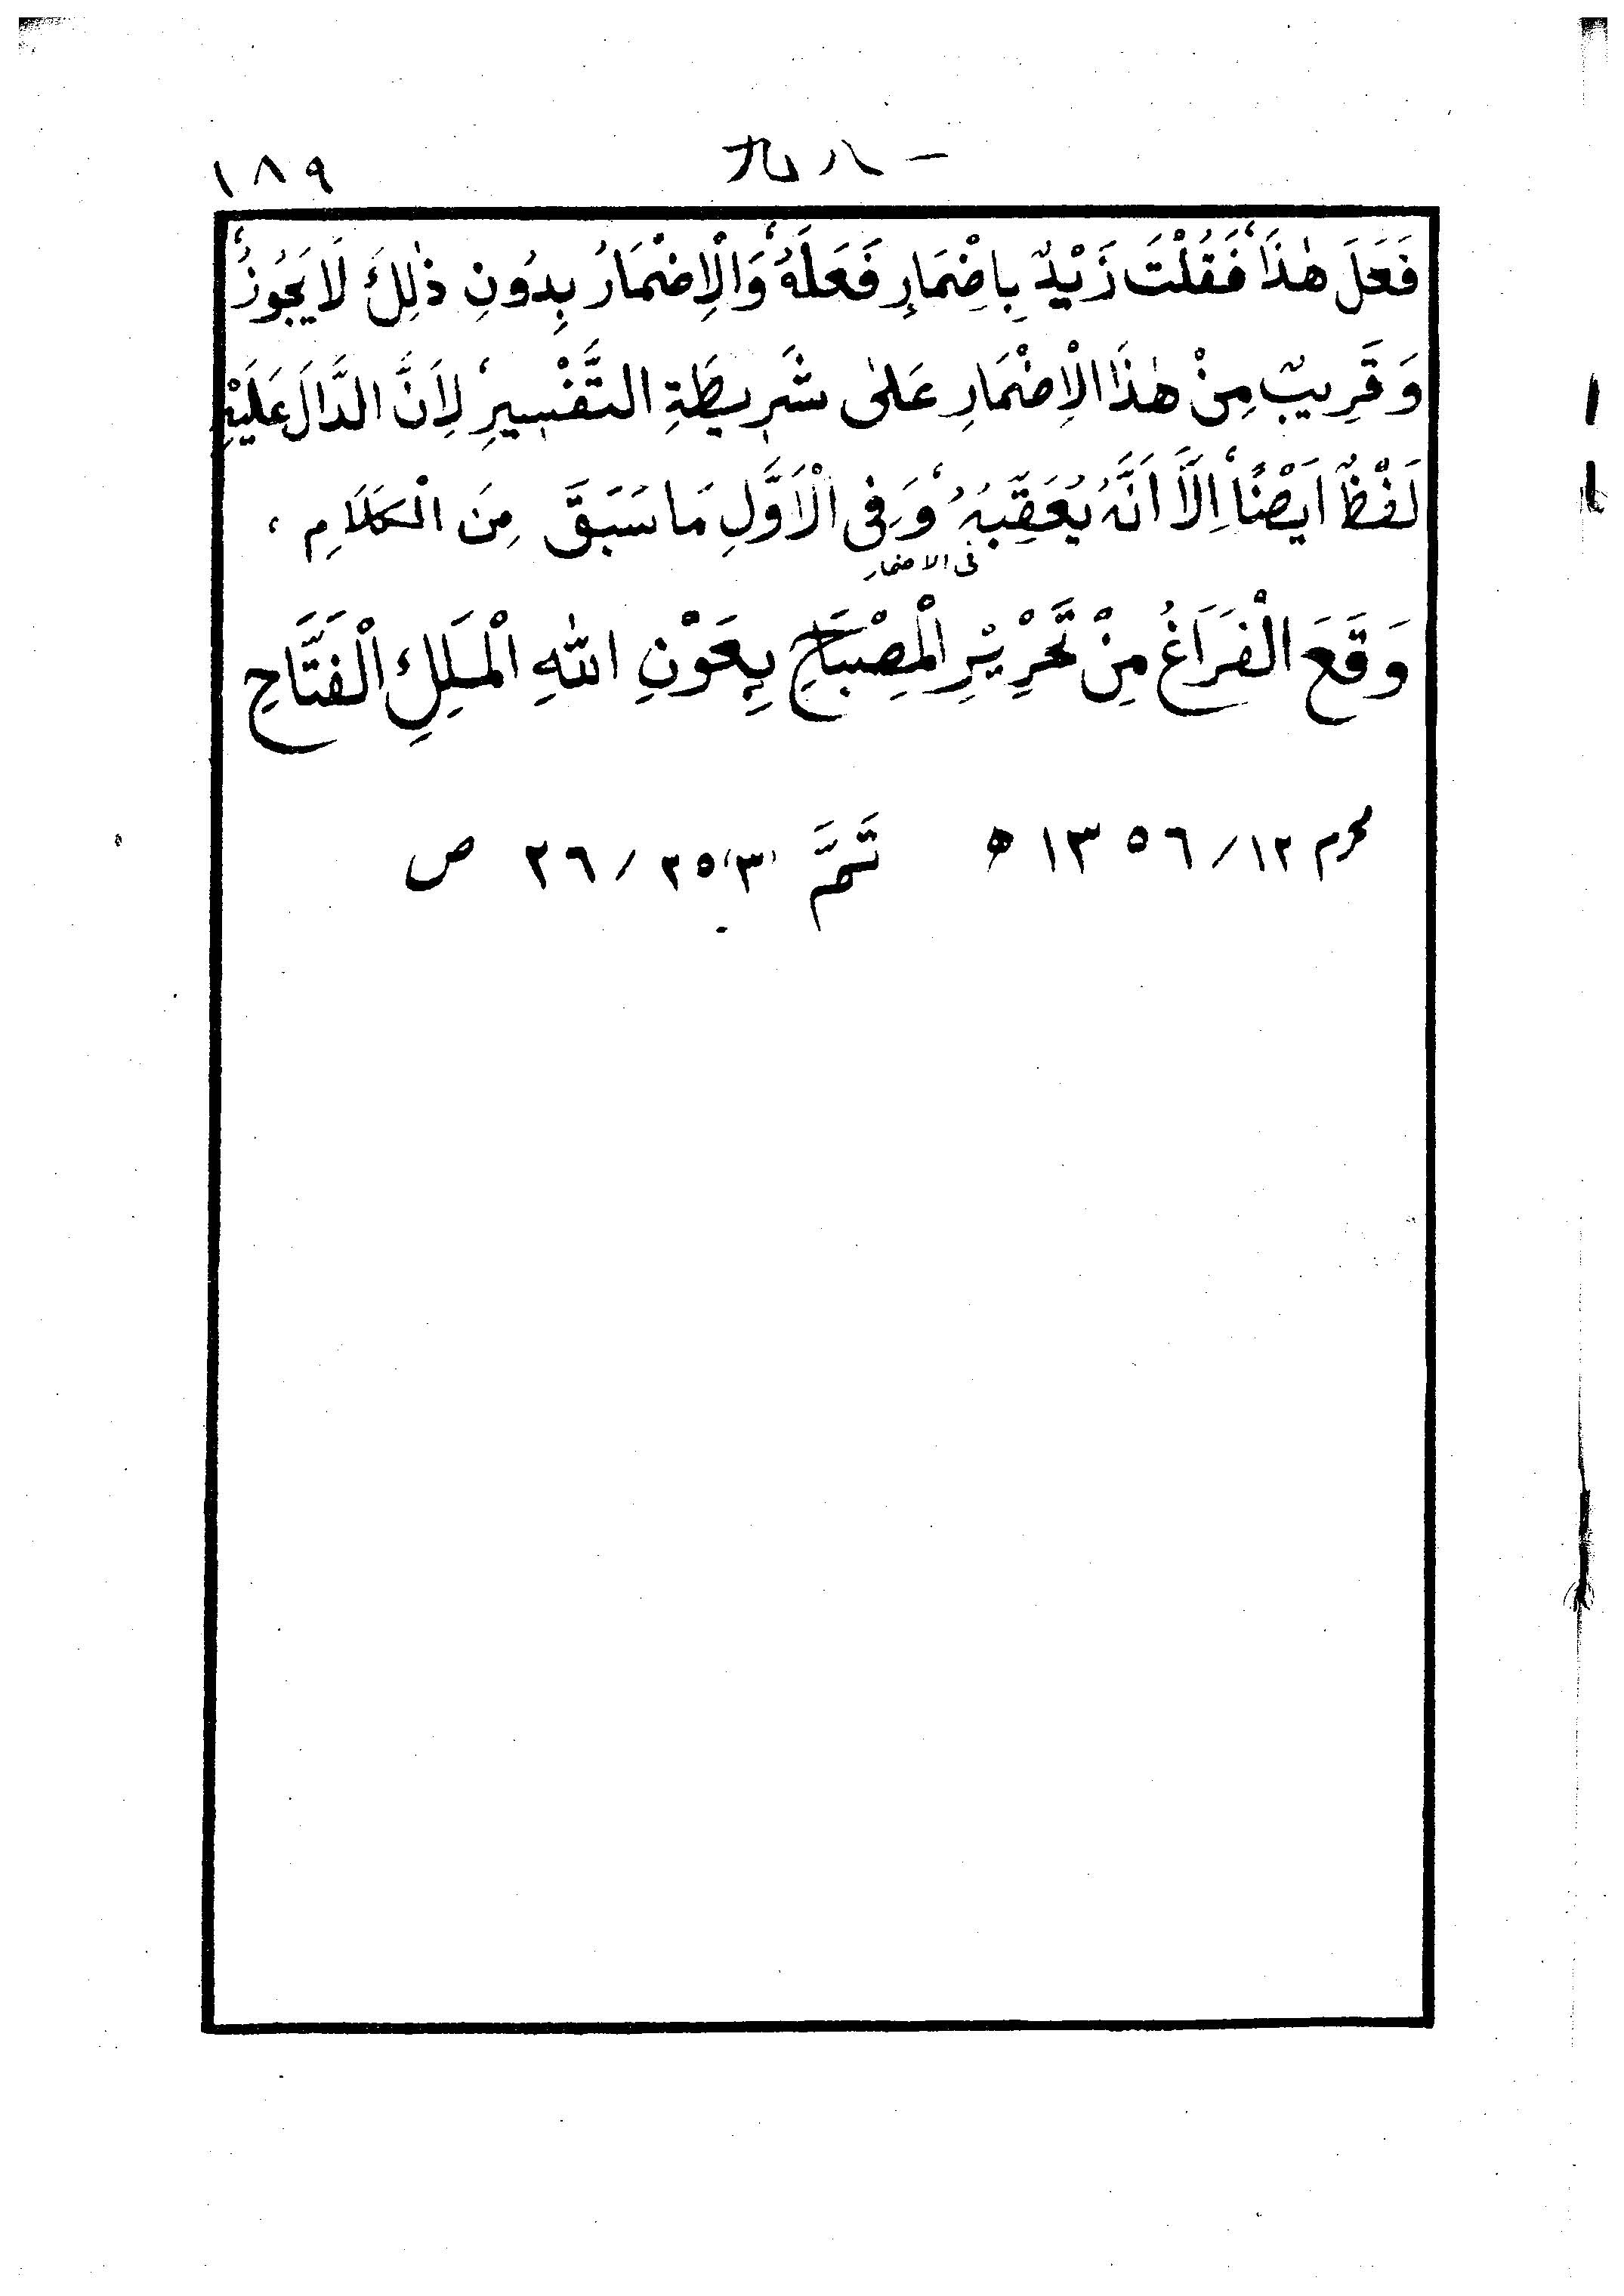 ١٨٩ 九八一
فَعَلَ هٰذَا، فَقُلْتَ زَيْدٌ بِاِضْمَارِ فَعَلَهُ، وَالْاِضْمَارُ بِدُونِ ذٰلِكَ لَا يَجُوزُ،
وَقَرِيبٌ مِنْ هٰذَا الْاِضْمَارِ عَلىٰ شَرِيطَةِ التَّفْسِيرِ، لِاَنَّ الدَّالَ عَلَيْهِ
لَفْظٌ اَيْضًا، اِلَّا اَنَّهُ يُعَقِّبُهُ، وَفِى الْاَوَّلِ مَا سَبَقَ مِنَ الْكَلَامِ،
فى الاضمار
وَقَعَ الْفَرَاغُ مِنْ تَحْرِيْرِ الْمِصْبَاحِ بِعَوْنِ اللهِ الْمَلِكِ الْفَتَّاحِ
محرم ١٢/ ١٣٥٦ ھ تَمَّ (٣) ٢٥/ ٢٦ ص